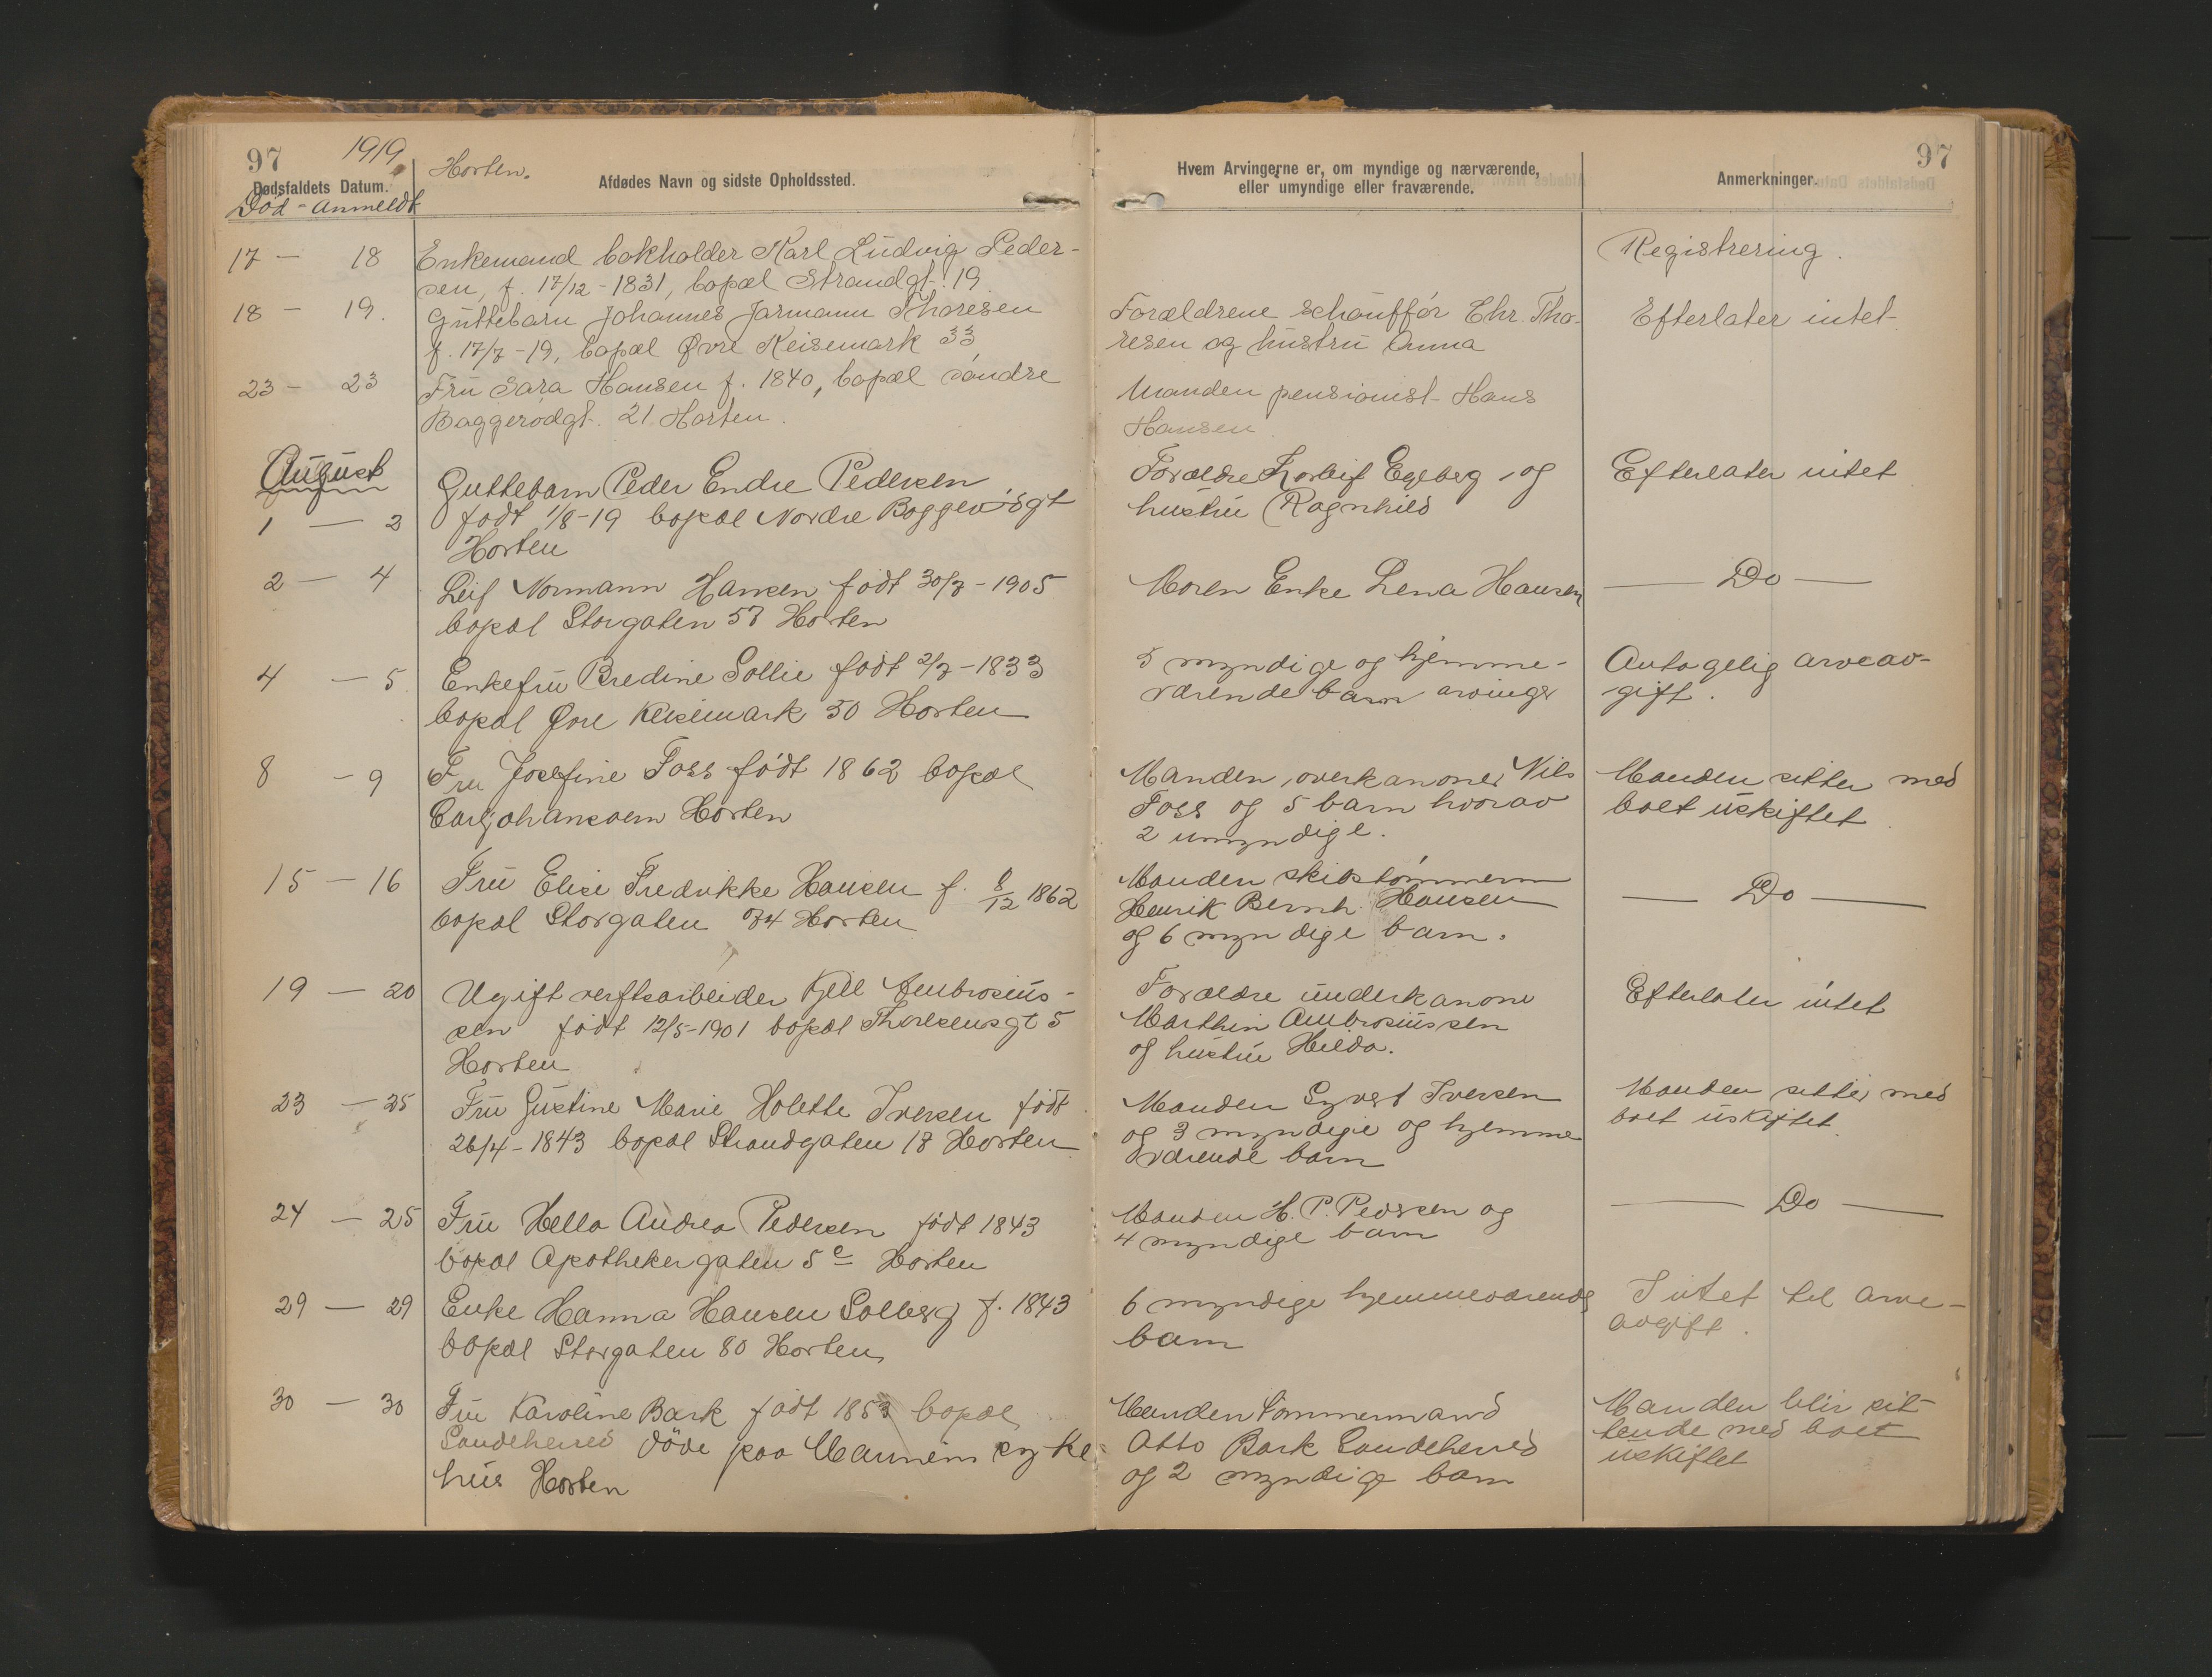 97
1919
Horten.
Dødsfaldets Datum.
Død - anmeldt
Afdødes Navn og sidste Opholdssted.
Hvem Arvingerne er, om myndige og nærværende,
eller umyndige eller fraværende.
Anmerkninger.
97
17 — 18
Enkemand bokholder Karl Ludvig Peder-
sen, f. 17/12 - 1831, bopæl Strandgt. 19
Registrering.
18 — 19.
Guttebarn Johannes Jarmann Thoresen
f. 17/7 - 19, bopæl Øvre Keisemark 33
Forældrene schauffør Chr. Tho-
resen og hustru Anna
Efterlater intet
23 — 23
Fru Sara Hansen f. 1840, bopæl søndre
Baggerødgt. 21 Horten.
Manden pensionist Hans
Hansen
August
1 — 2
Guttebarn Peder Endre Pedersen
født 1/8-19 bopæl Nordre Baggerødgt
Horten
Forældre Thorleif Egeberg og
hustru Ragnhild
Efterlater intet
2 — 4
Leif Normann Hansen født 30/7 - 1905
bopæl Storgaten 57 Horten
Moren Enke Lena Hansen
— Do —
4 — 5
Enkefru Bredine Sollie født 2/7 - 1833
bopæl Øvre Keisemark 30 Horten
5 myndige og hjemme-
værende barn arvinger
Antagelig arveav-
gift.
8 — 9
Fru Josefine Foss født 1862 bopæl
Carljohansvern Horten
Manden, overkanoner Nils
Foss og 5 barn hvorav
2 umyndige.
Manden sitter med
boet uskiftet
15 — 16
Fru Elise Fredrikke Hansen f. 8/12 1862
bopæl Storgaten 74 Horten
Manden skibstømmerm
Henrik Bernh. Hansen
og 6 myndige barn.
— Do —
19 — 20
Ugift verftsarbeider Kjell Ambrosius-
sen født 12/5-1901 bopæl Thoresensgt 5
Horten
Forældre underkanoner
Marthin Ambrosiussen
og hustru Hilda.
Efterlater intet
23 — 25
Fru Gustine Marie Holette Iversen født
26/4 - 1843 bopæl Strandgaten 18 Horten
Manden Syvert Iversen
og 3 myndige og hjemme
værende barn
Manden sitter med
boet uskiftet.
24 — 25
Fru Hella Andrea Pedersen født 1843
bopæl Apothekergaten 5 c Horten
Manden H. P. Pedersen og
4 myndige barn
— Do —
29 — 29
Enke Hanna Hansen Solberg f. 1843
bopæl Storgaten 80 Horten
6 myndige hjemmeværende
barn
Intet til arve-
avgift.
30 — 30
Fru Karoline Bark født 1853 bopæl
Sandeherred døde paa Marinens syke-
hus Horten
Manden tømmermand
Otto Bark Sandeherred
og 2 myndige barn
Manden blir sit-
tende med boet
uskiftet